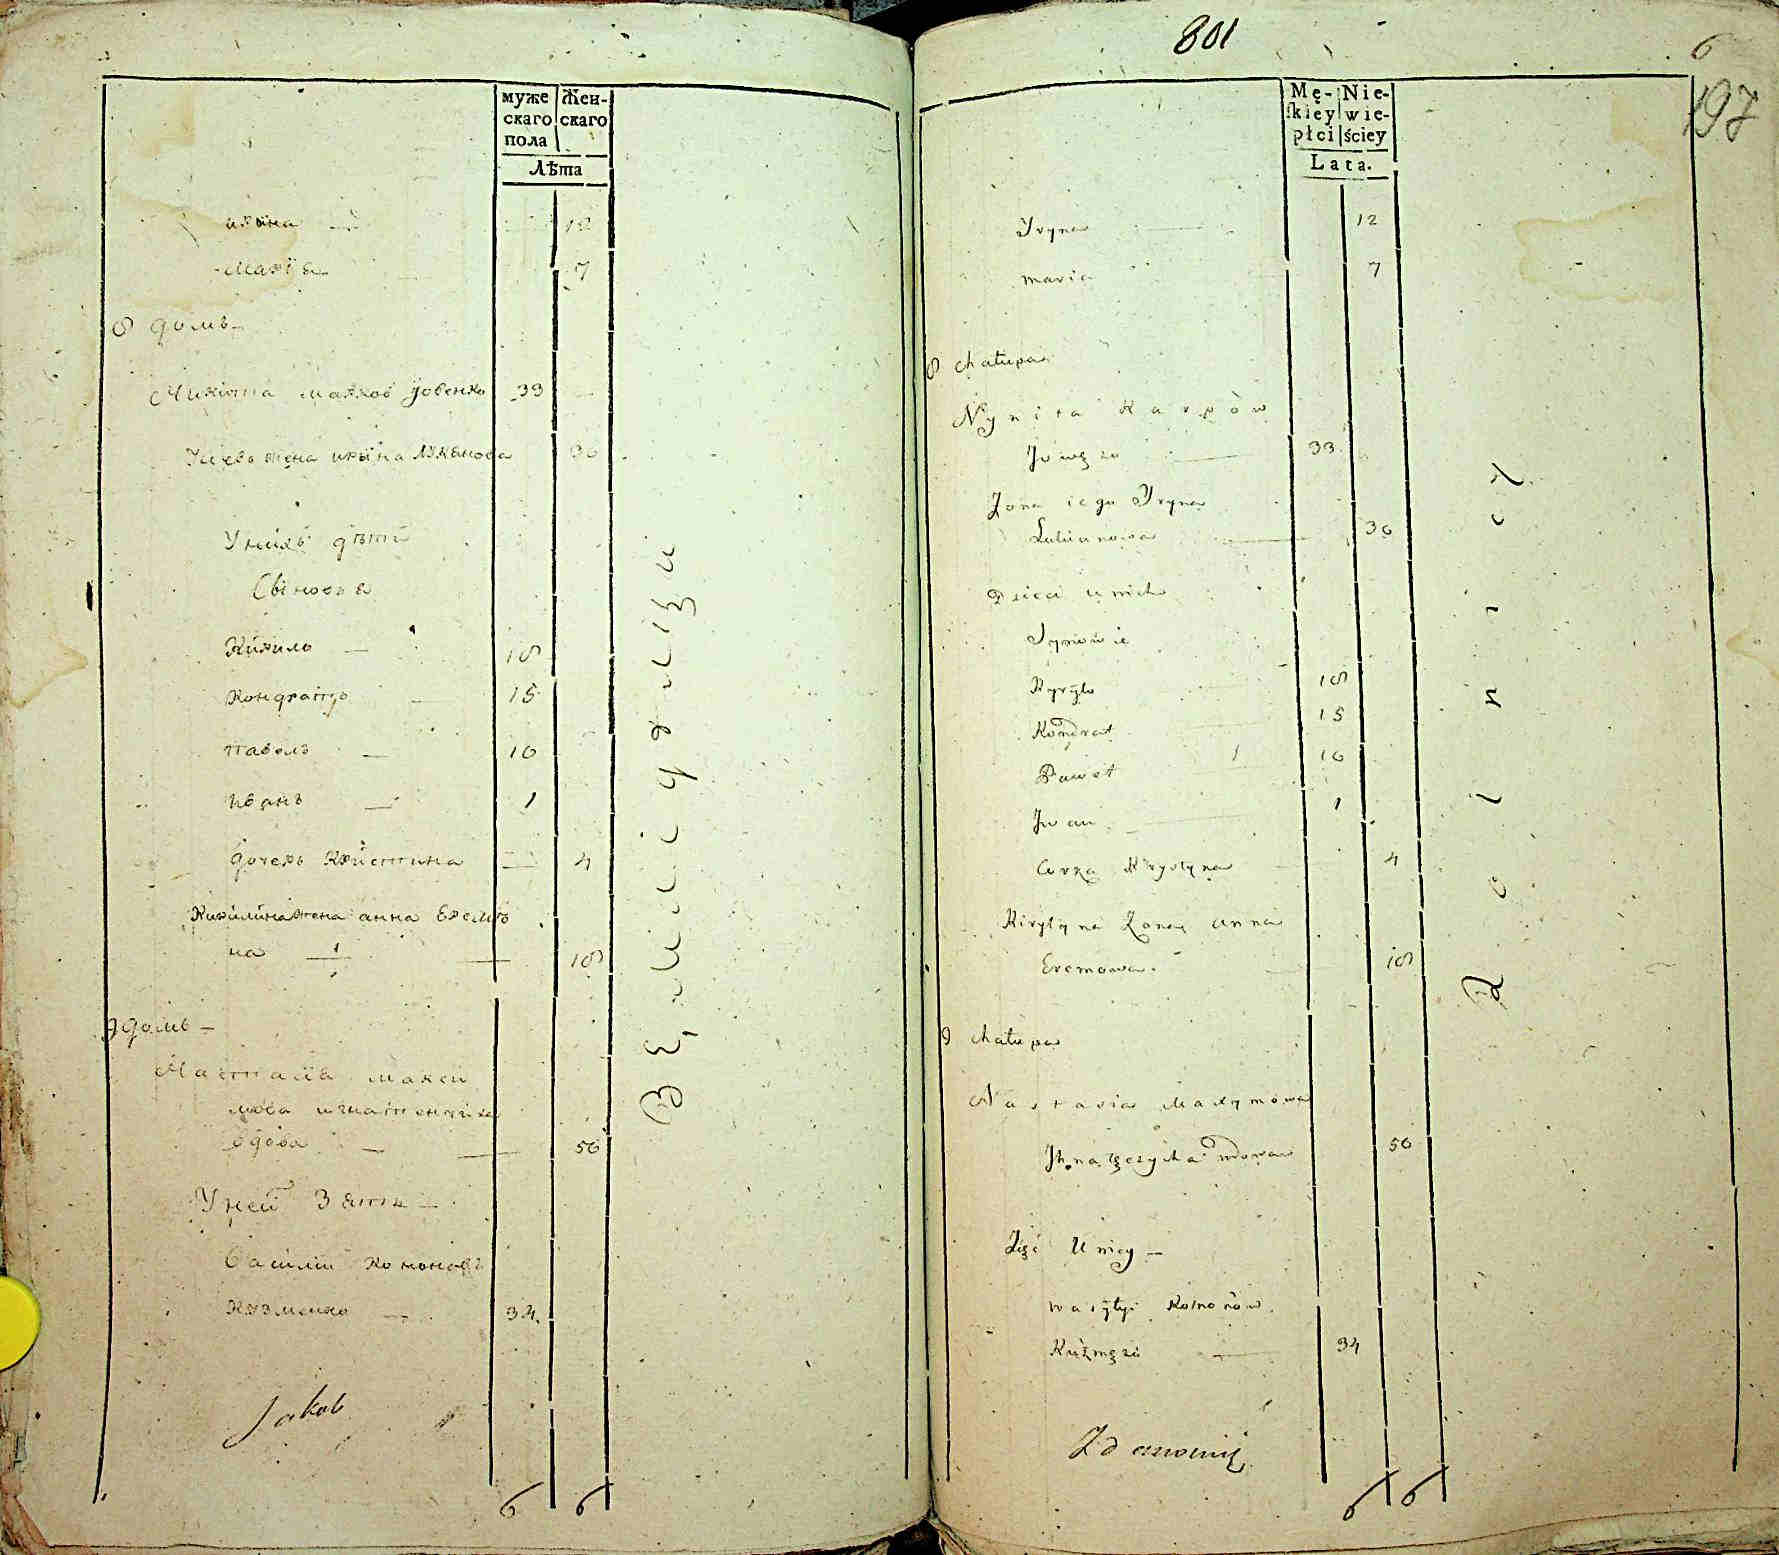 муже
скаго
пола
Жен-
скаго
Лѣта
ирына — 12
Марія 7
8 домъ —
Микита Карпов Йовенко 33
Уневожена ирына Лукянова 30
Уних дѣти
Сыновя
Кирило — 18
Кондратъ 15
павелъ — 10
Иванъ — 1
дочерь Крістина — 4
Кирилина жена анна Еремо
ва — — 18
9 домъ —
Настасія Макси
мова игнатенчиха
вдова — — 56
У ней Зять —
Василій Кононовъ
Кузменко — 34
Jakob
6 6
801
6
197
Mę-
skiey
płci
Nie-
wie-
ściey
Lata.
Iryna 12
Maria 7
8 Chałupa
Nykita Karpòw
Jowęzo — 33
Zona iego Iryna
Łukianowa — 30
Dzieci u nich
Synowie
Kyryło 18
Kondrat 15
Paweł 10
Jwan 1
Corka Krystyna 4
Kiryłyna Zona anna
Eremowa. 18
9 Chałupa
Nastasia Maxymowa
Ihnaęczycha wdowa 56
Zięć U niey —
Wasylyi Kononòw
Kuzmęzo 34
Zdanowicz
6 6